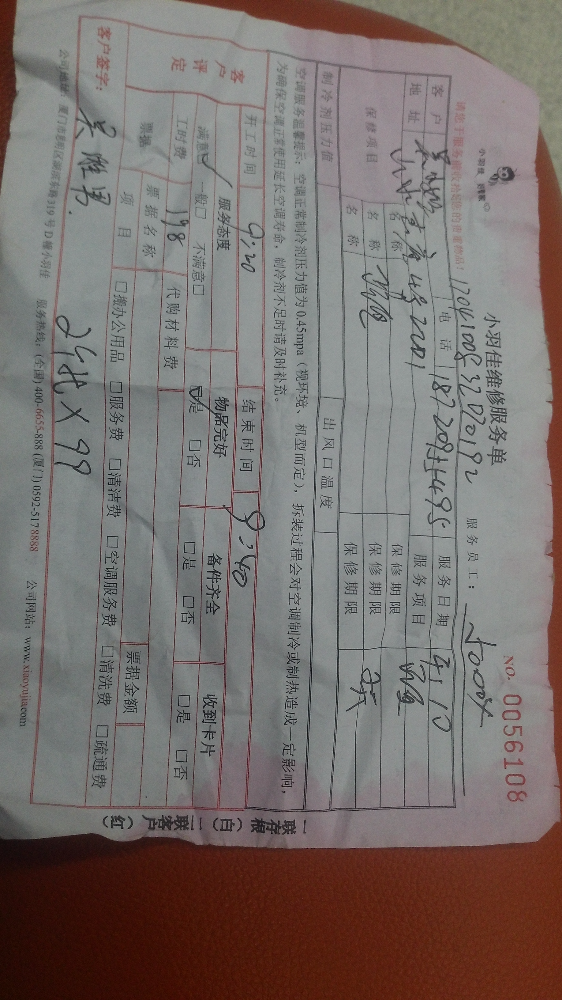 小羽佳维修服务单
NO. 0056108
小羽佳
1704100832070192 服务员工：
客户 电话 服务日期 4.10
地址 服务项目
保修项目 名称 保修期限
名称 保修期限
名称 保修期限
制冷剂压力值 出风口温度
空调服务温馨提示：空调正常制冷剂压力值为0.45mpa（视环境、机型而定），拆装过程会对空调制冷或制热造成一定影响，
为确保空调正常使用延长空调寿命，制冷剂不足时请及时补充。
开工时间 9:20 结束时间 9:40
客户评定 服务态度 物品完好 备件齐全 收到卡片
满意☑ 一般□ 不满意□ ☑是 □否 □是 □否 □是 □否
工时费 198 代购材料费
票据 票据名称 票据金额
项目 □搬办公用品 □服务费 □清洁费 □空调服务费 □清洗费 □疏通费
客户签字： 2代×99
公司地址：厦门市思明区湖滨东路319号D幢小羽佳 服务热线：(全国) 400-6655-888 (厦门) 0592-5178888 公司网站：www.xiaoyujia.com
一联存根（白） 二联客户（红）